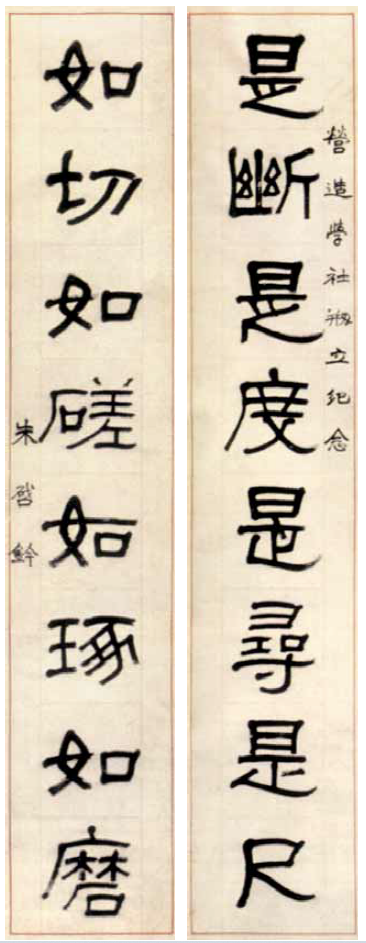 營造學社剏立紀念
是斷是度是尋是尺
如切如磋如琢如磨
朱啓鈐